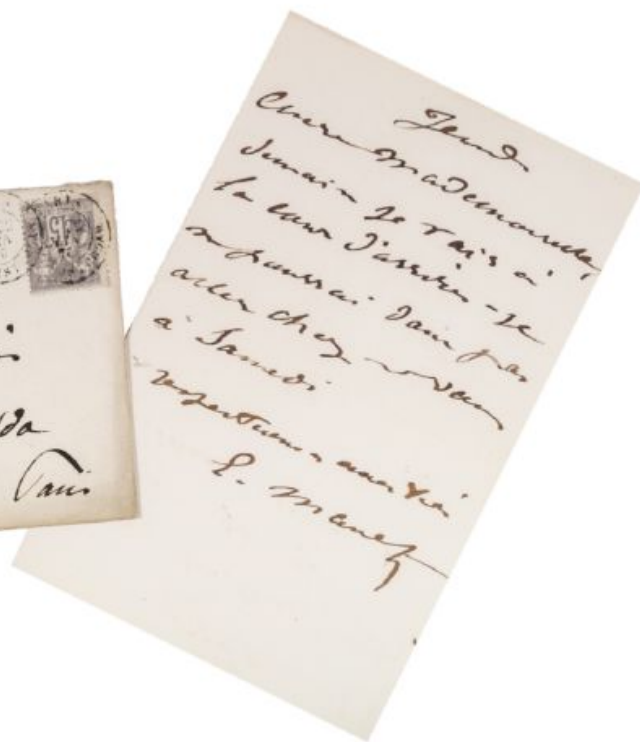 15
Paris
Jeudi
Chère Mademoiselle,
demain je vais à
la cour d'assises - je
ne pourrai donc pas
aller chez vous
à Samedi
E. Manet